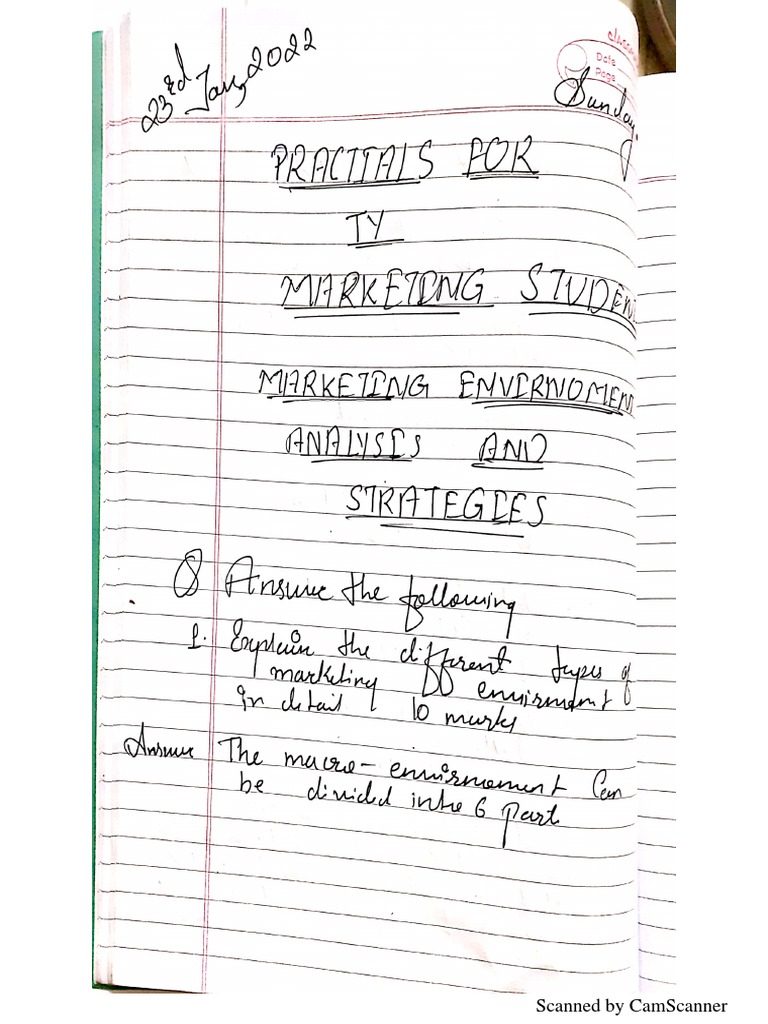 23rd Jan, 2022
Date
Page
Sunday.
PRACITALS FOR
TY
MARKETING STUDEN
MARKETING ENVIRNOMEN
ANALYSIS AND
STRATEGIES
Q Answer the following
1. Explain the different types of
marketing envirnoment
in detail 10 marks
Answer The macro-envirnoment Can
be divided into 6 part
Scanned by CamScanner